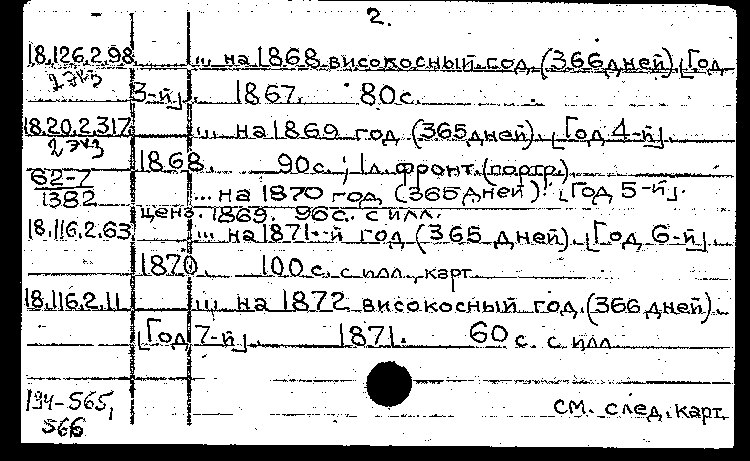 2.
18.126.2.98 ... на 1868 високосный год (366 дней). [Год
2 экз
3-й]. 1867. 80 с.
18.20.2.317 ... на 1869 год (365 дней). [Год 4-й].
2 экз
1868. 90 с.; 1 л. фронт. (портр.).
62-7/1382 ... на 1870 год (365 дней). [Год 5-й].
ценз. 1869. 96 с. с илл.
18.116.2.63 ... на 1871-й год (365 дней). [Год 6-й].
1870. 100 с. с илл., карт.
18.116.2.11 ... на 1872 високосный год. (366 дней).
[Год 7-й]. 1871. 60 с. с илл.
194-565,
566
см. след. карт.